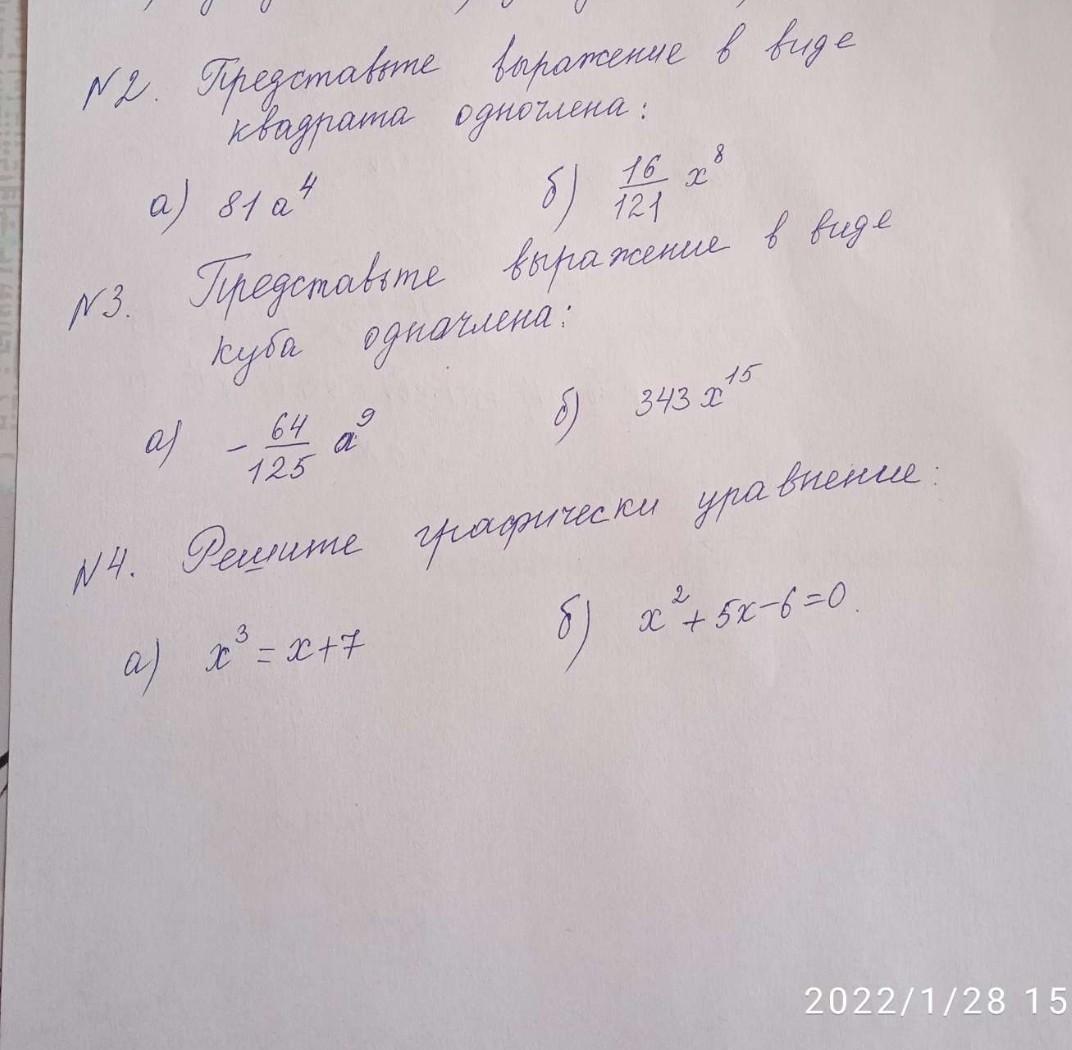 №2. Представьте выражение в виде
квадрата одночлена:
а) 81a⁴ б) 16/121 x⁸
№3. Представьте выражение в виде
куба одначлена:
а) -64/125 a⁹ б) 343x¹⁵
№4. Решите графически уравнение:
а) x³ = x+7 б) x²+5x-6=0.
2022/1/28 15